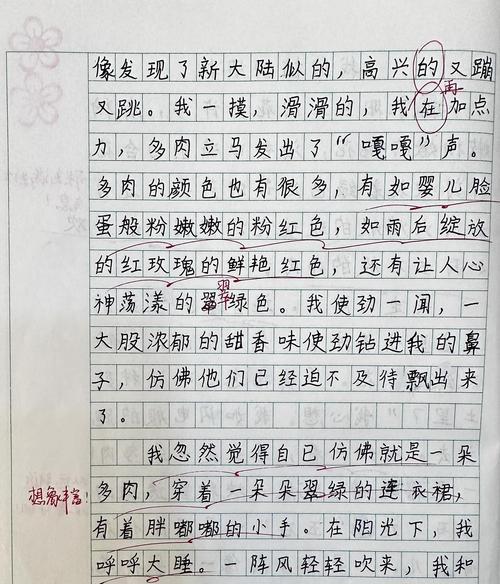 像发现了新大陆似的，高兴的又蹦
再
又跳。我一摸，滑滑的，我在加点
力，多肉立马发出了“嘎嘎”声。
多肉的颜色也有很多，有如婴儿脸
蛋般粉嫩嫩的粉红色，如雨后绽放
的红玫瑰的鲜艳红色，还有让人心
翠
神荡漾的翠绿色。我使劲一闻，一
大股浓郁的甜香味使劲钻进我的鼻
子，仿佛他们已经迫不及待飘出来
了。
我忽然觉得自己仿佛就是一朵
想象丰富！
多肉，穿着一朵朵翠绿的连衣裙，
有着胖嘟嘟的小手。在阳光下，我
呼呼大睡。一阵风轻轻吹来，我和